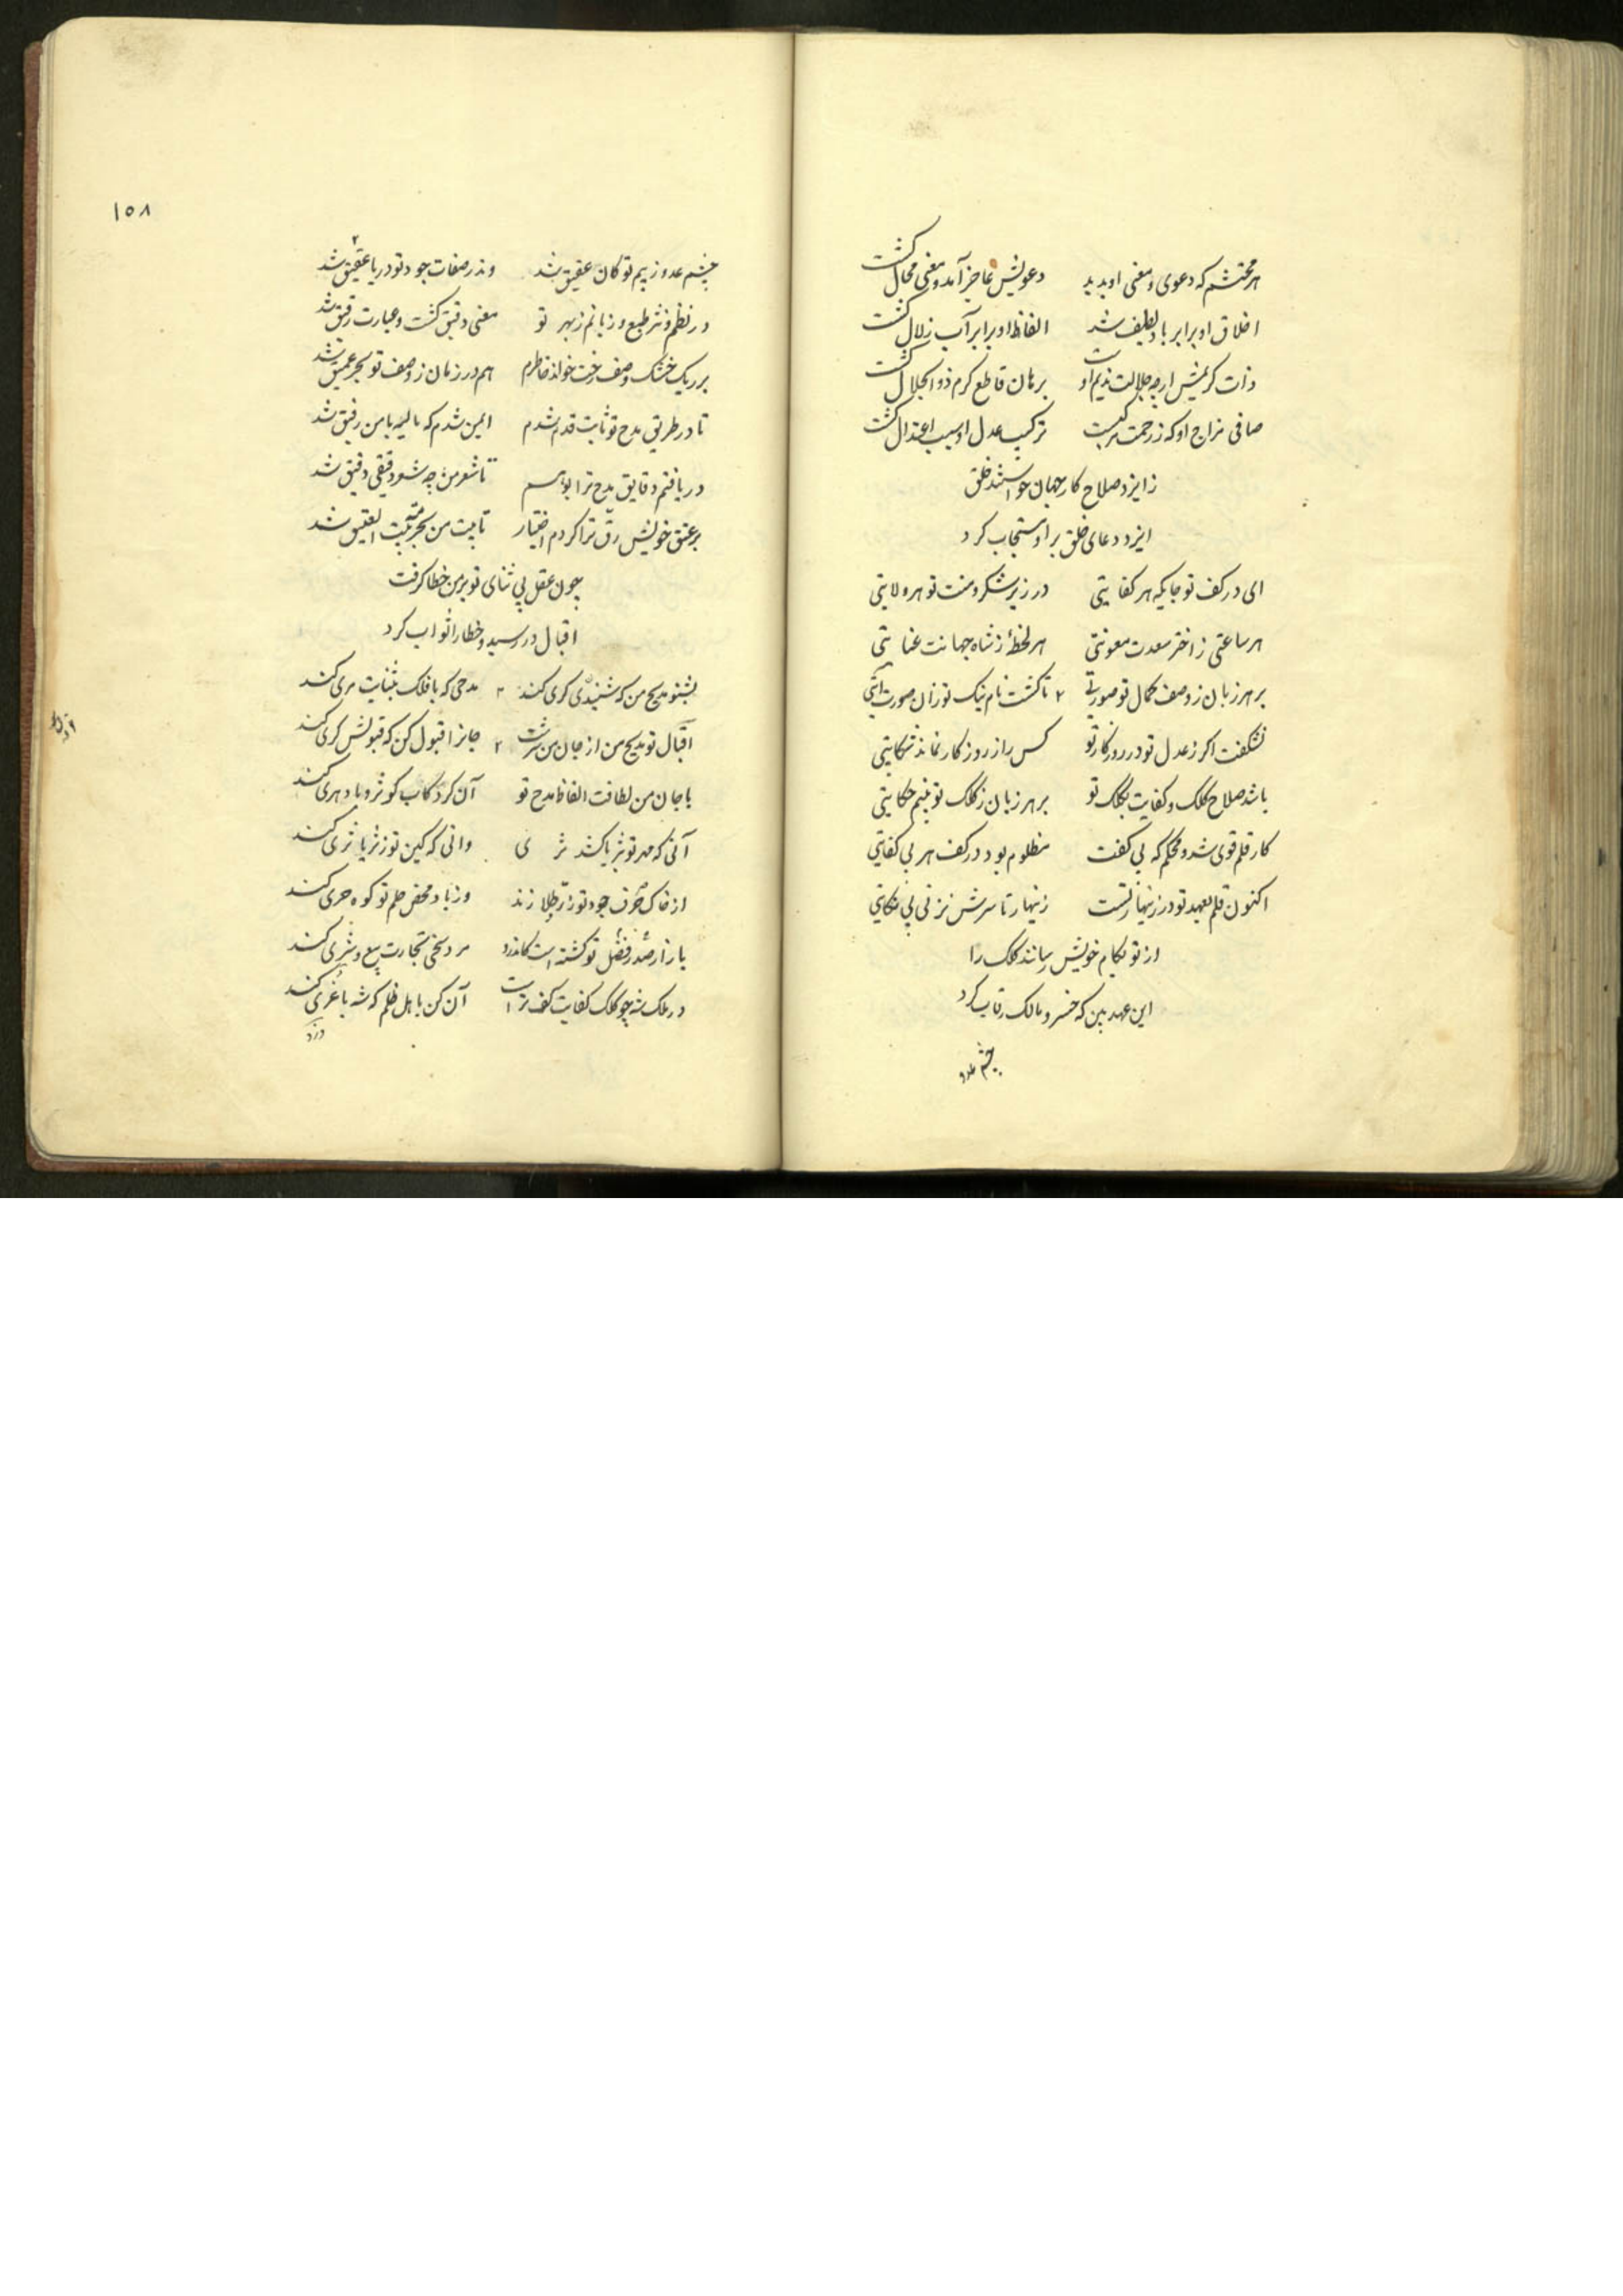 هر محتشم که دعوی و معنی او بدید دعویش عاجز آمد و معنی محال گشت
اخلاق او برابر باد لطیف شد الفاظ او برابر آب زلال گشت
ذات کریمش ارچه جلالت ندیم او برهان قاطع کرم ذوالجلال گشت
صافی مزاج او که ز رحمت مرکبست ترکیب عدل او سبب اعتدال گشت
ز ایزد صلاح کار جهان خواستند خلق
ایزد دعای خلق برا و مستجاب کرد
ای در کف تو جایکه هر کفایتی در زیر شکر و منت تو هر ولایتی
هر ساعتی ز اختر سعدت معونتی هر لحظهٔ ز شاه جهانت عنایتی
بر هر زبان ز وصف کمال تو صورتی ۲ تا گشت نام نیک تو زان صورت آیتی
نشکفت اکر ز عدل تو در روزکار تو کس را ز روزکار نماند شکایتی
باشد صلاح کلک و کفایت بکلک تو بر هر زبان ز کلک تو بینم حکایتی
کار قلم قوی شد و محکم که بی کفت مظلوم بود در کف هر بی کفایتی
اکنون قلم بعهد تو در زینهار تست زینهار تا سرش نزنی بی نکایتی
از تو بکام خویش رسانند کلک را
این عهد بین که خسرو مالک رقاب کرد
چشم عدو
۱۵۸
چشم عدو ز بیم تو کان عقیق شد وندر صفات جود تو دریا عقیق شد
در نظم و نثر طبع و زبانم ز بهر تو معنی دقیق گشت و عبارت رقیق شد
بر ریک خشک وصف رخت خواند خاطرم هم در زمان ز وصف تو بحر عمیق شد
تا در طریق مدح تو ثابت قدم شدم ایمن شدم که با من رفیق شد
دریافتم دقایق مدح ترا بوسم تا شعر من چه شعر دقیقی دقیق شد
بر عتق خویش رق ترا کردم اختیار تا بیت من بحرمت بیت العتیق شد
چون عقل بی ثنای تو بر من خطا کرفت
اقبال در رسید و خطا را ثواب کرد
بشنو مدیح من که شنیدی کری کند ۲ مدحی که با فلک بثنایت مری کند
اقبال تو مدیح من از جان من سرشت ۲ جانرا قبول کن که قبولش کری کند
با جان من لطافت الفاظ مدح تو آن کرد کاب کوثر و باد هری کند
آنی که مهر تو بثریا کشد ثری وانی که کین تو ز ثریا ثری کند
از خاک حرف جود تو زر طلا زند وز باد محض حلم تو کوه حری کند
بازار صدر فضل تو گشته است کاندرو مرد سخی تجارت بیع و شری کند
در ملک شه چو کلک کفایت کف تراست آن کن با اهل ظلم که شه با غزی کند